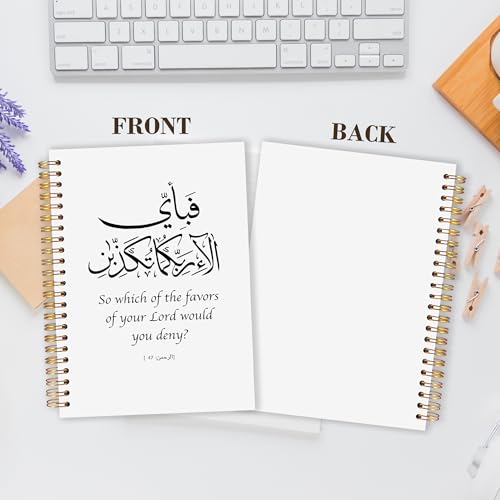 FRONT
BACK
فَبِأَيِّ
آلَاءِ رَبِّكُمَا تُكَذِّبَٰنِ
So which of the favors
of your Lord would
you deny?
[الرحمن: 47 ]